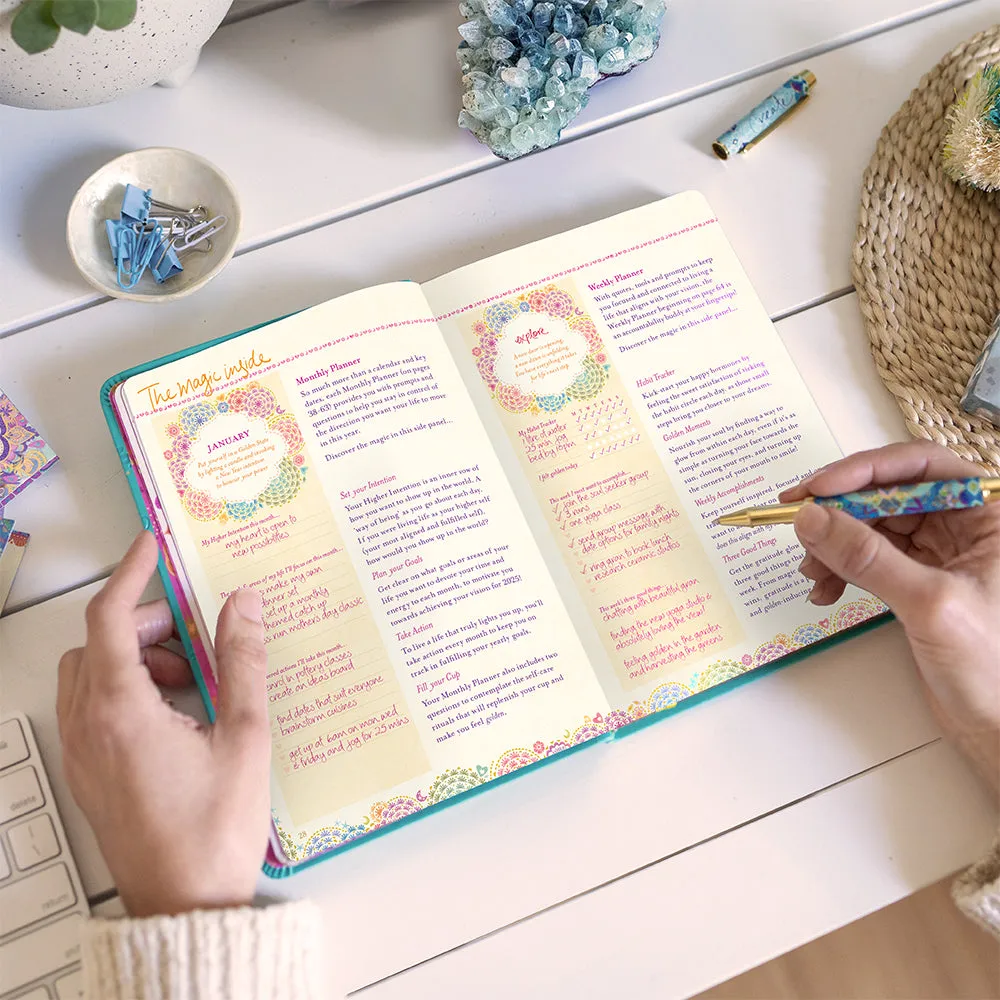 The Magic inside
JANUARY
Put yourself in a Golden State
by lighting a candle and creating
a distraction-free intention
to honour your power.
My Higher Intention this month:
my heart is open to
new possibilities
areas of my life I'll focus on this month:
make my own
dinner set
set up a monthly
themed catch up
run mother's day classic
actions I'll take this month:
enrol in pottery classes
create an ideas board
find dates that suit everyone
brainstorm cuisines
get up at 6am on mon, wed
& friday and jog for 25 mins
28
Monthly Planner
So much more than a calendar and key
dates, each Monthly Planner (on pages
38-63) provides you with prompts and
questions to help you stay in control of
the direction you want your life to move
in this year.
Discover the magic in this side panel...
Set your Intention
Your Higher Intention is an inner vow of
how you want to show up in the world. A
'way of being' as you go about each day.
If you were living life as your higher self
(your most aligned and fulfilled self),
how would you show up in the world?
Plan your Goals
Get clear on what areas of your
life you want to devote your time and
energy to each month, to motivate you
towards achieving your vision for 2025!
Take Action
To live a life that truly lights you up, you'll
take action every month to keep you on
track in fulfilling your yearly goals.
Fill your Cup
Your Monthly Planner also includes two
questions to contemplate the self-care
rituals that will replenish your cup and
make you feel golden.
explore
A new door is opening,
a new dawn is unfolding.
You have everything it takes
for life's next step.
My Habit Tracker
1 litre of water
25 min jog
bed by 9pm
I felt golden today
This week I want to accomplish:
join the soul seeker group
3 runs
one yoga class
send group message with
date options for family nights
ring aran to book lunch
research ceramic studios
This week's three good things:
chatting with beautiful gran
finding the new yoga studio &
absolutely loving the view!
feeling golden in the garden
and harvesting the greens
Weekly Planner
With quotes, tools and prompts to keep
you focused and connected to living a
life that aligns with your vision, the
Weekly Planner beginning on page 64 is
an accountability buddy at your fingertips!
Discover the magic in this side panel...
Habit Tracker
Kick-start your happy hormones by
feeling the sweet satisfaction of ticking
the habit circle each day, as those tiny
steps bring you closer to your dreams.
Golden Moments
Nourish your soul by finding a way to
glow from within each day, even if it's as
simple as turning your face towards the
sun, closing your eyes, and turning up
the corners of your mouth to smile!
Weekly Accomplishments
Keep yourself inspired, focused
want to
does this align with my
Three Good Things
Get the gratitude glowing
three good things that
week. From magic
wins, gratitude is a
and golden-inducing
create
delete
return